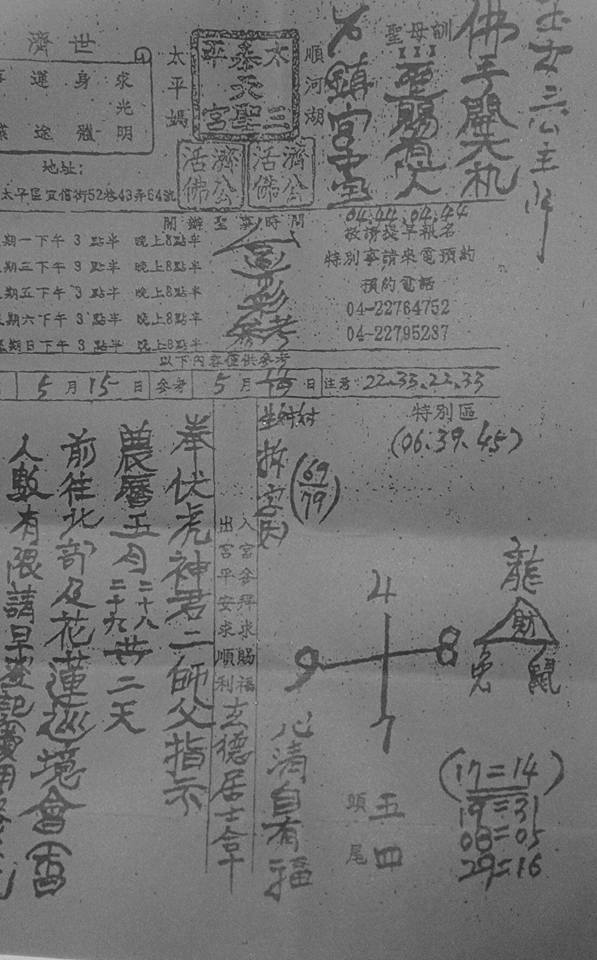 玉女三公主降
佛手開天机
聖母訓
聖賜有人
石鎮宮堂
順河湖
太平媽
太三
泰天聖
平宮
濟公活佛
濟公活佛
濟世
求光明
身體
運途
地址:
太平區宜佰街52巷43弄64號
開辦聖事時間
期一下午 3 點半 晚上8點半
期三下午 3 點半 晚上8點半
期五下午 3 點半 晚上8點半
期六下午 3 點半 晚上8點半
期日下午 3 點半 晚上8點半
04.44.04.44
敬請提早報名
特別事請來電預約
預約電話
04-22764752
04-22795237
參考
以下內容僅供參考
5 月 15 日 參考 5 月 日 注意: 22.33.22.33
特別區
(06、39、45)
拆字因
(69/79)
入宮參拜求賜福
出宮平安求順利
玄德居士拿
奉伏虎神君二師父指示
農曆五月二十八二十九共二天
前往北部及花蓮巡境會香
人數有限請早登記費用
4
9
8
7
龍
財
兔
鼠
心清自有福
頭 五
尾 四
(17=14)
19=31
08=05
29=16